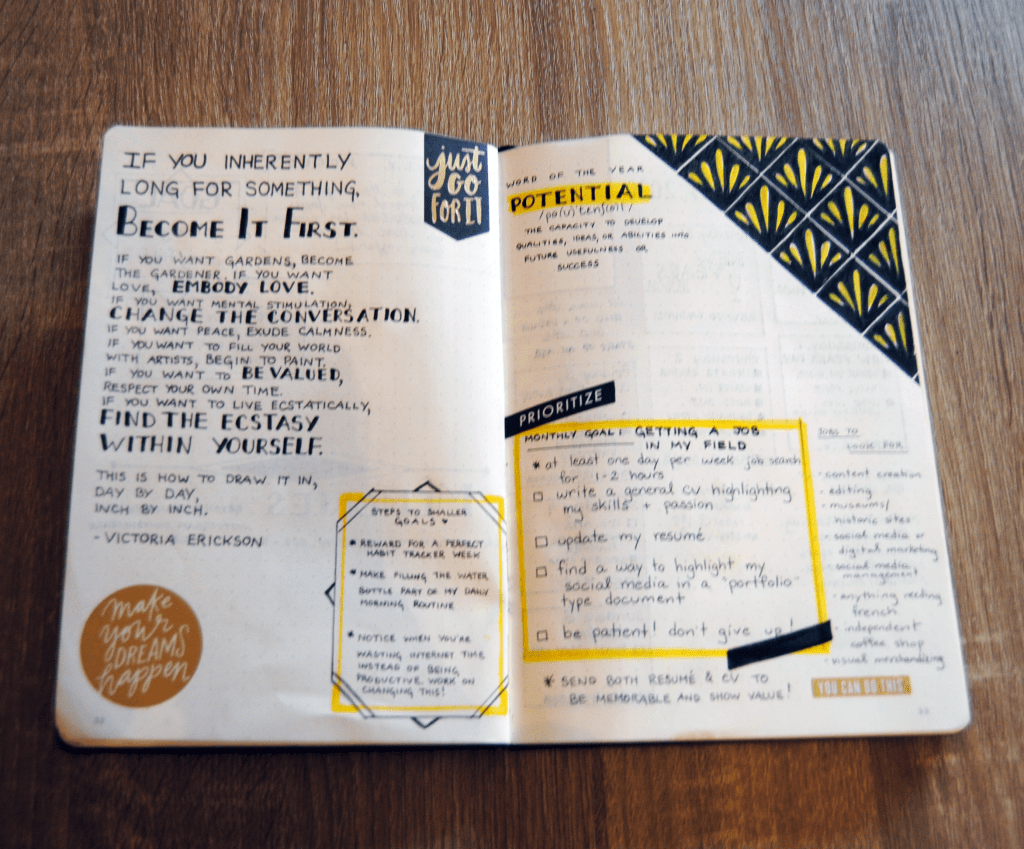 IF YOU INHERENTLY
LONG FOR SOMETHING,
BECOME IT FIRST.
IF YOU WANT GARDENS, BECOME
THE GARDENER. IF YOU WANT
LOVE, EMBODY LOVE.
IF YOU WANT MENTAL STIMULATION,
CHANGE THE CONVERSATION.
IF YOU WANT PEACE, EXUDE CALMNESS.
IF YOU WANT TO FILL YOUR WORLD
WITH ARTISTS, BEGIN TO PAINT.
IF YOU WANT TO BE VALUED,
RESPECT YOUR OWN TIME.
IF YOU WANT TO LIVE ECSTATICALLY,
FIND THE ECSTASY
WITHIN YOURSELF.
THIS IS HOW TO DRAW IT IN,
DAY BY DAY,
INCH BY INCH.
- VICTORIA ERICKSON
just
GO
FOR IT
make
your
DREAMS
happen
STEPS TO SMALLER
GOALS
* REWARD FOR A PERFECT
HABIT TRACKER WEEK
* MAKE FILLING THE WATER
BOTTLE PART OF MY DAILY
MORNING ROUTINE
* NOTICE WHEN YOU'RE
WASTING INTERNET TIME
INSTEAD OF BEING
PRODUCTIVE. WORK ON
CHANGING THIS!
WORD OF THE YEAR
POTENTIAL
THE CAPACITY TO DEVELOP
QUALITIES, IDEAS, OR ABILITIES INTO
FUTURE USEFULNESS OR
SUCCESS
PRIORITIZE
MONTHLY GOAL: GETTING A JOB
IN MY FIELD
* at least one day per week job search
for 1-2 hours
write a general CV highlighting
my skills + passion
update my resumé
find a way to highlight my
social media in a "portfolio"
type document
be patient! don't give up!
* SEND BOTH RESUMÉ & CV TO
BE MEMORABLE AND SHOW VALUE!
JOBS TO
LOOK FOR
- content creation
- editing
- museums/
historic sites
- social media or
digital marketing
- social media
management
- anything needing
french
- independent
coffee shop
- visual merchandizing
YOU CAN DO THIS